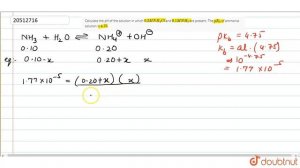 20512716
Calculate the pH of the solution in which 0.2M NH₄Cl and 0.1M NH₃ are present. The pKb of ammonia solution is 4.75.
NH₃ + H₂O ⇌ NH₄⊕ + OH⊖
0.10 0.20
eq: 0.10-x 0.20+x x
1.77×10⁻⁵ = (0.20+x) (x)
pKb = 4.75
Kb = al. (4.75)
= 10⁻⁴·⁷⁵
= 1.77 × 10⁻⁵
doubtnut